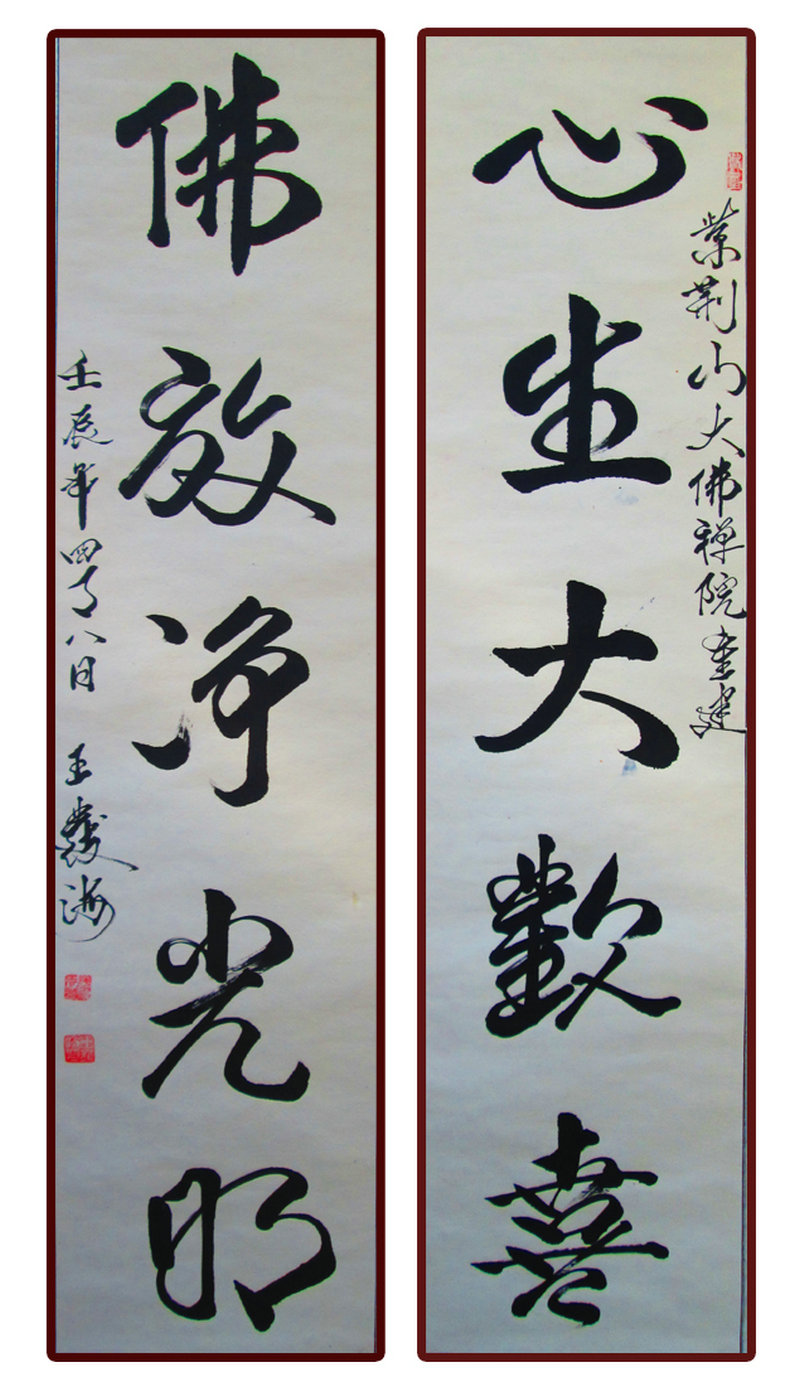 紫荆山大佛禅院重建
心生大歡喜
佛放净光明
壬辰年四月八日 王發海